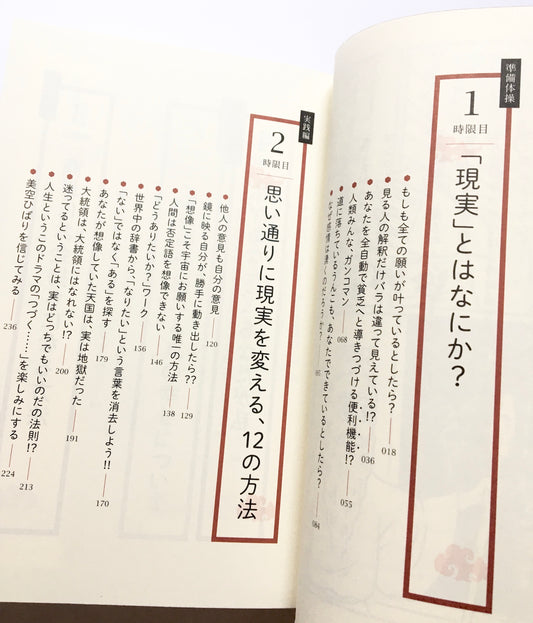 準備体操
1時限目
「現実」とはなにか?
もしも全ての願いが叶っているとしたら? 018
見る人の解釈だけバラは違って見えている!? 036
あなたを全自動で貧乏へと導きつづける便利機能!? 055
人類みんな、ガンコマン 068
道に落ちているうんこも、あなたでできているとしたら? 084
なぜ感情は湧くのだろうか?
実践編
2時限目
思い通りに現実を変える、12の方法
他人の意見も自分の意見 120
鏡に映る自分が、勝手に動き出したら?? 129
「想像」こそ宇宙にお願いする唯一の方法 138
人間は否定語を想像できない 146
「どうありたいか?」ワーク 156
世界中の辞書から、「なりたい」という言葉を消去しよう!! 170
「ない」ではなく「ある」を探す 179
あなたが想像していた天国は、実は地獄だった 191
大統領は、大統領にはなれない!? 200
迷ってるということは、実はどっちでもいいのだの法則!? 213
人生というこのドラマの「つづく……」を楽しみにする 224
美空ひばりを信じてみる 236